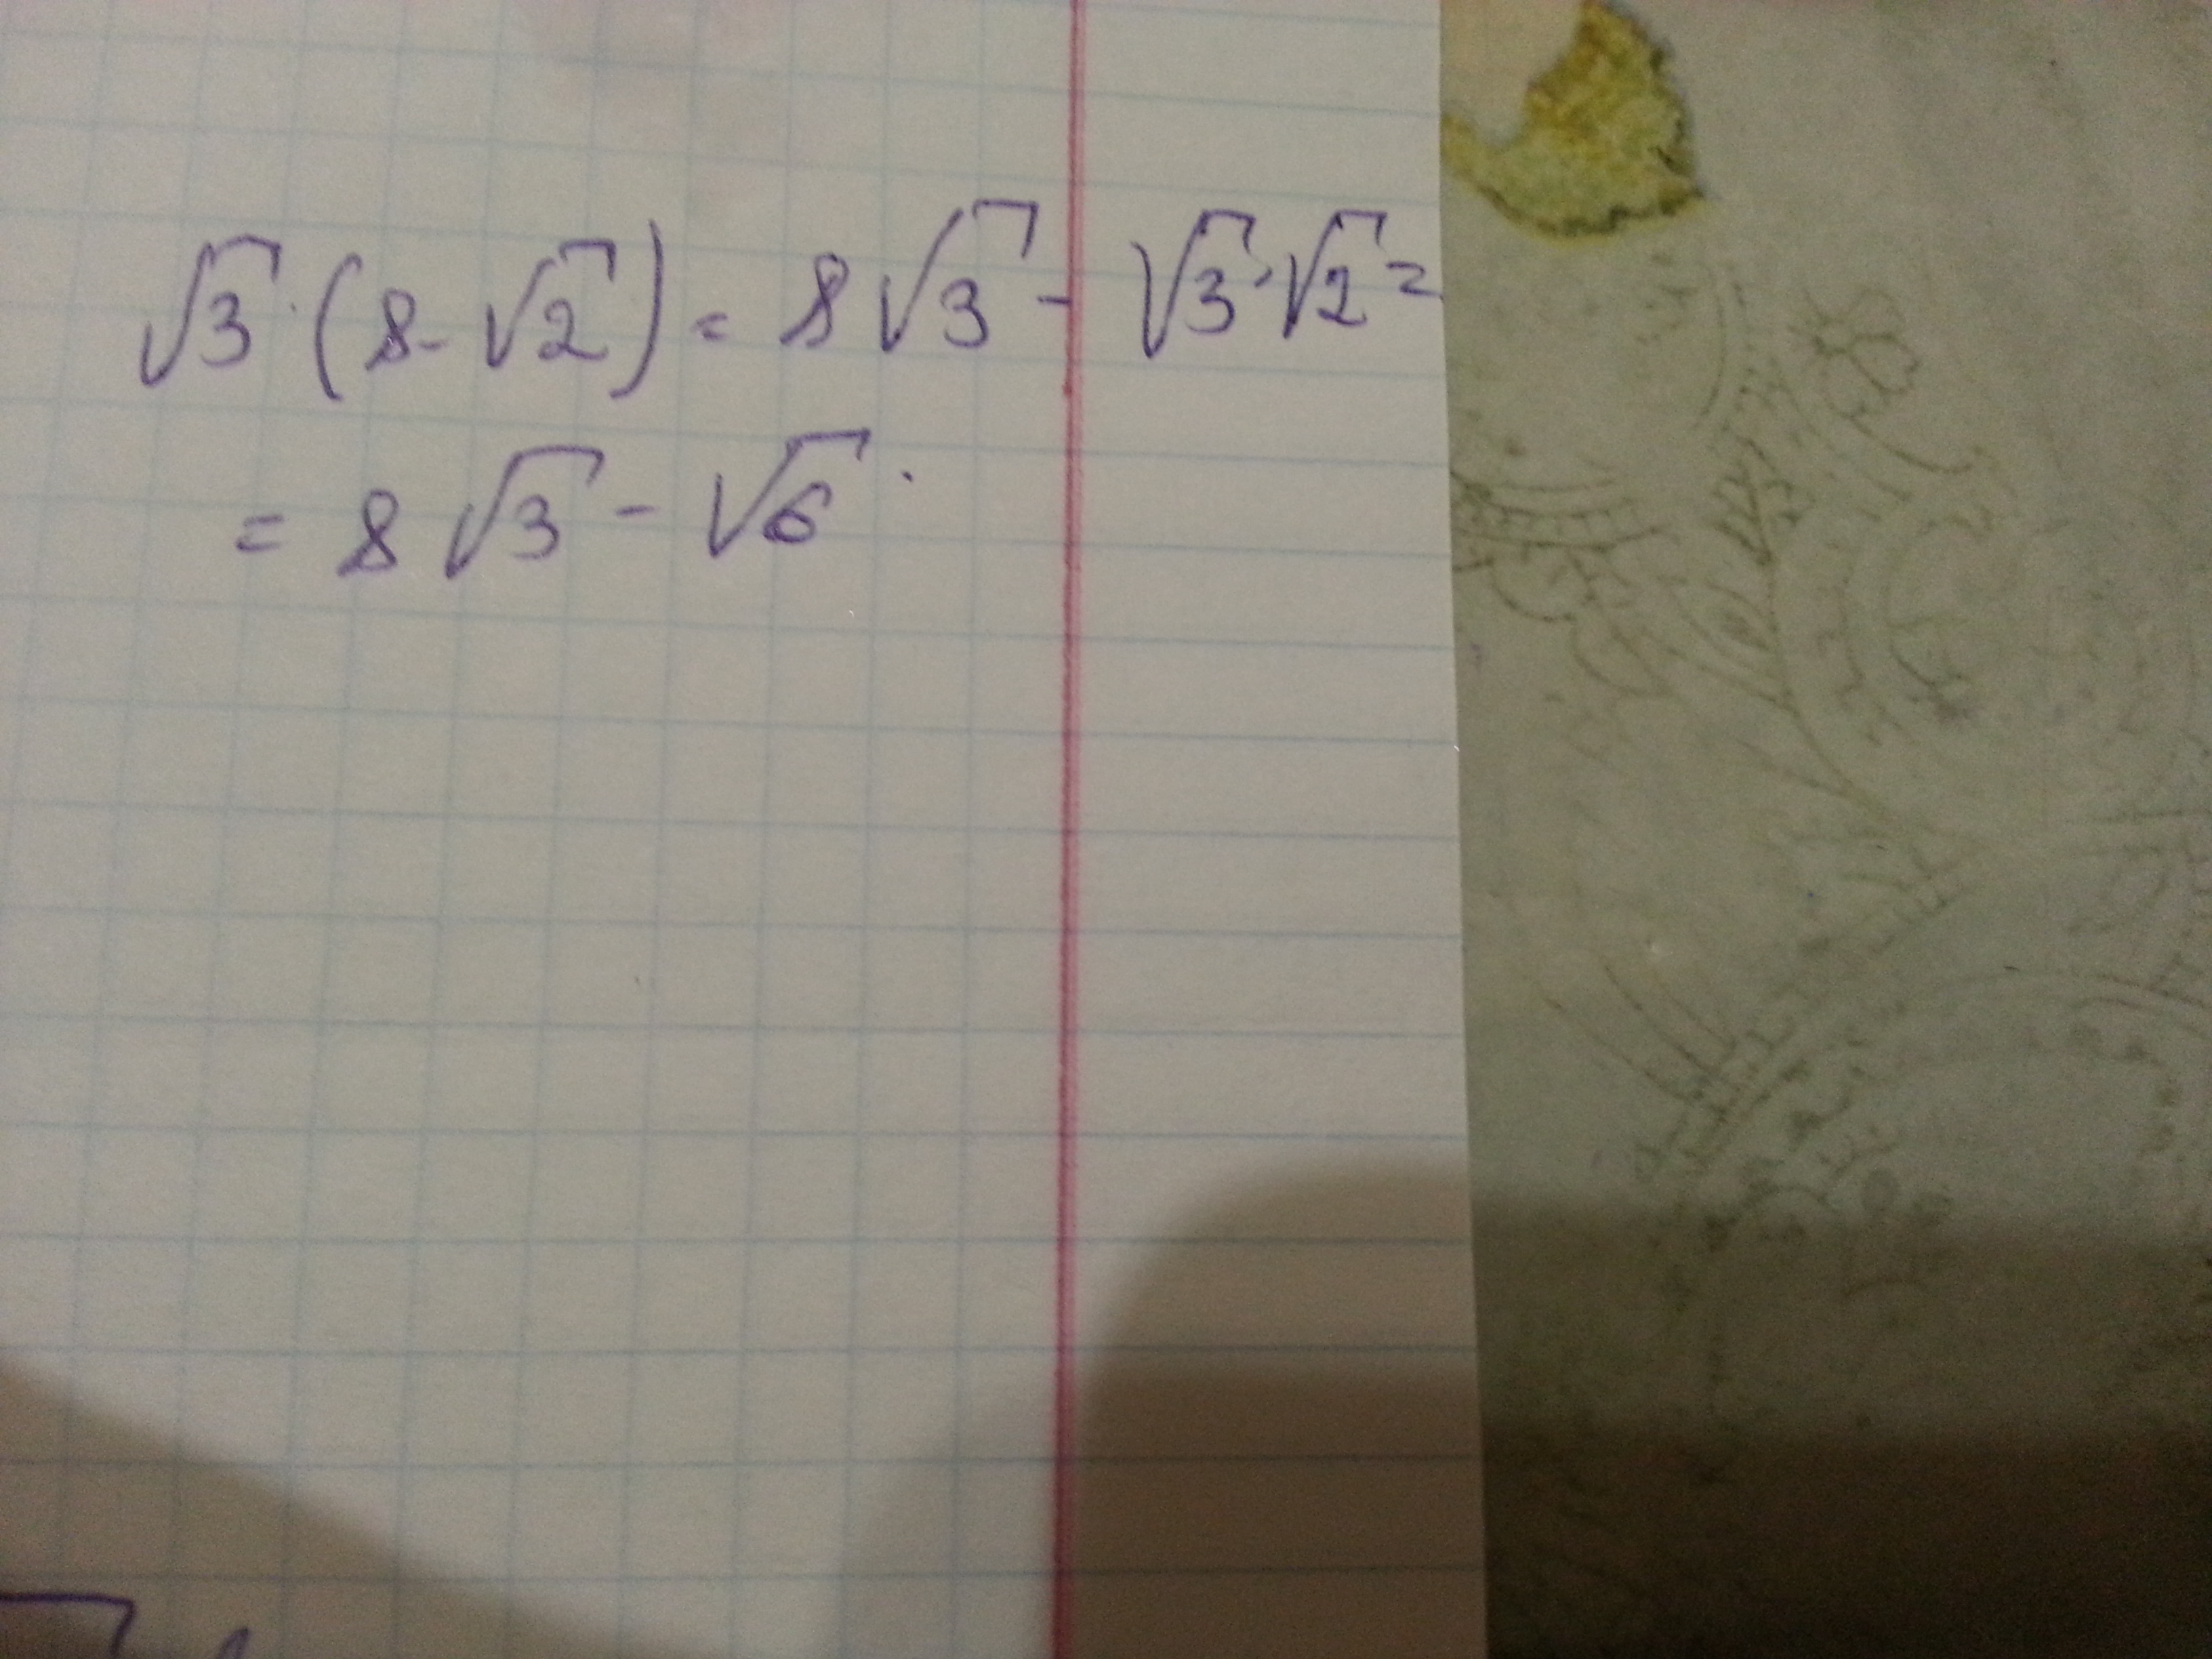 √3·(8-√2)=8√3-√3·√2=
=8√3-√6.